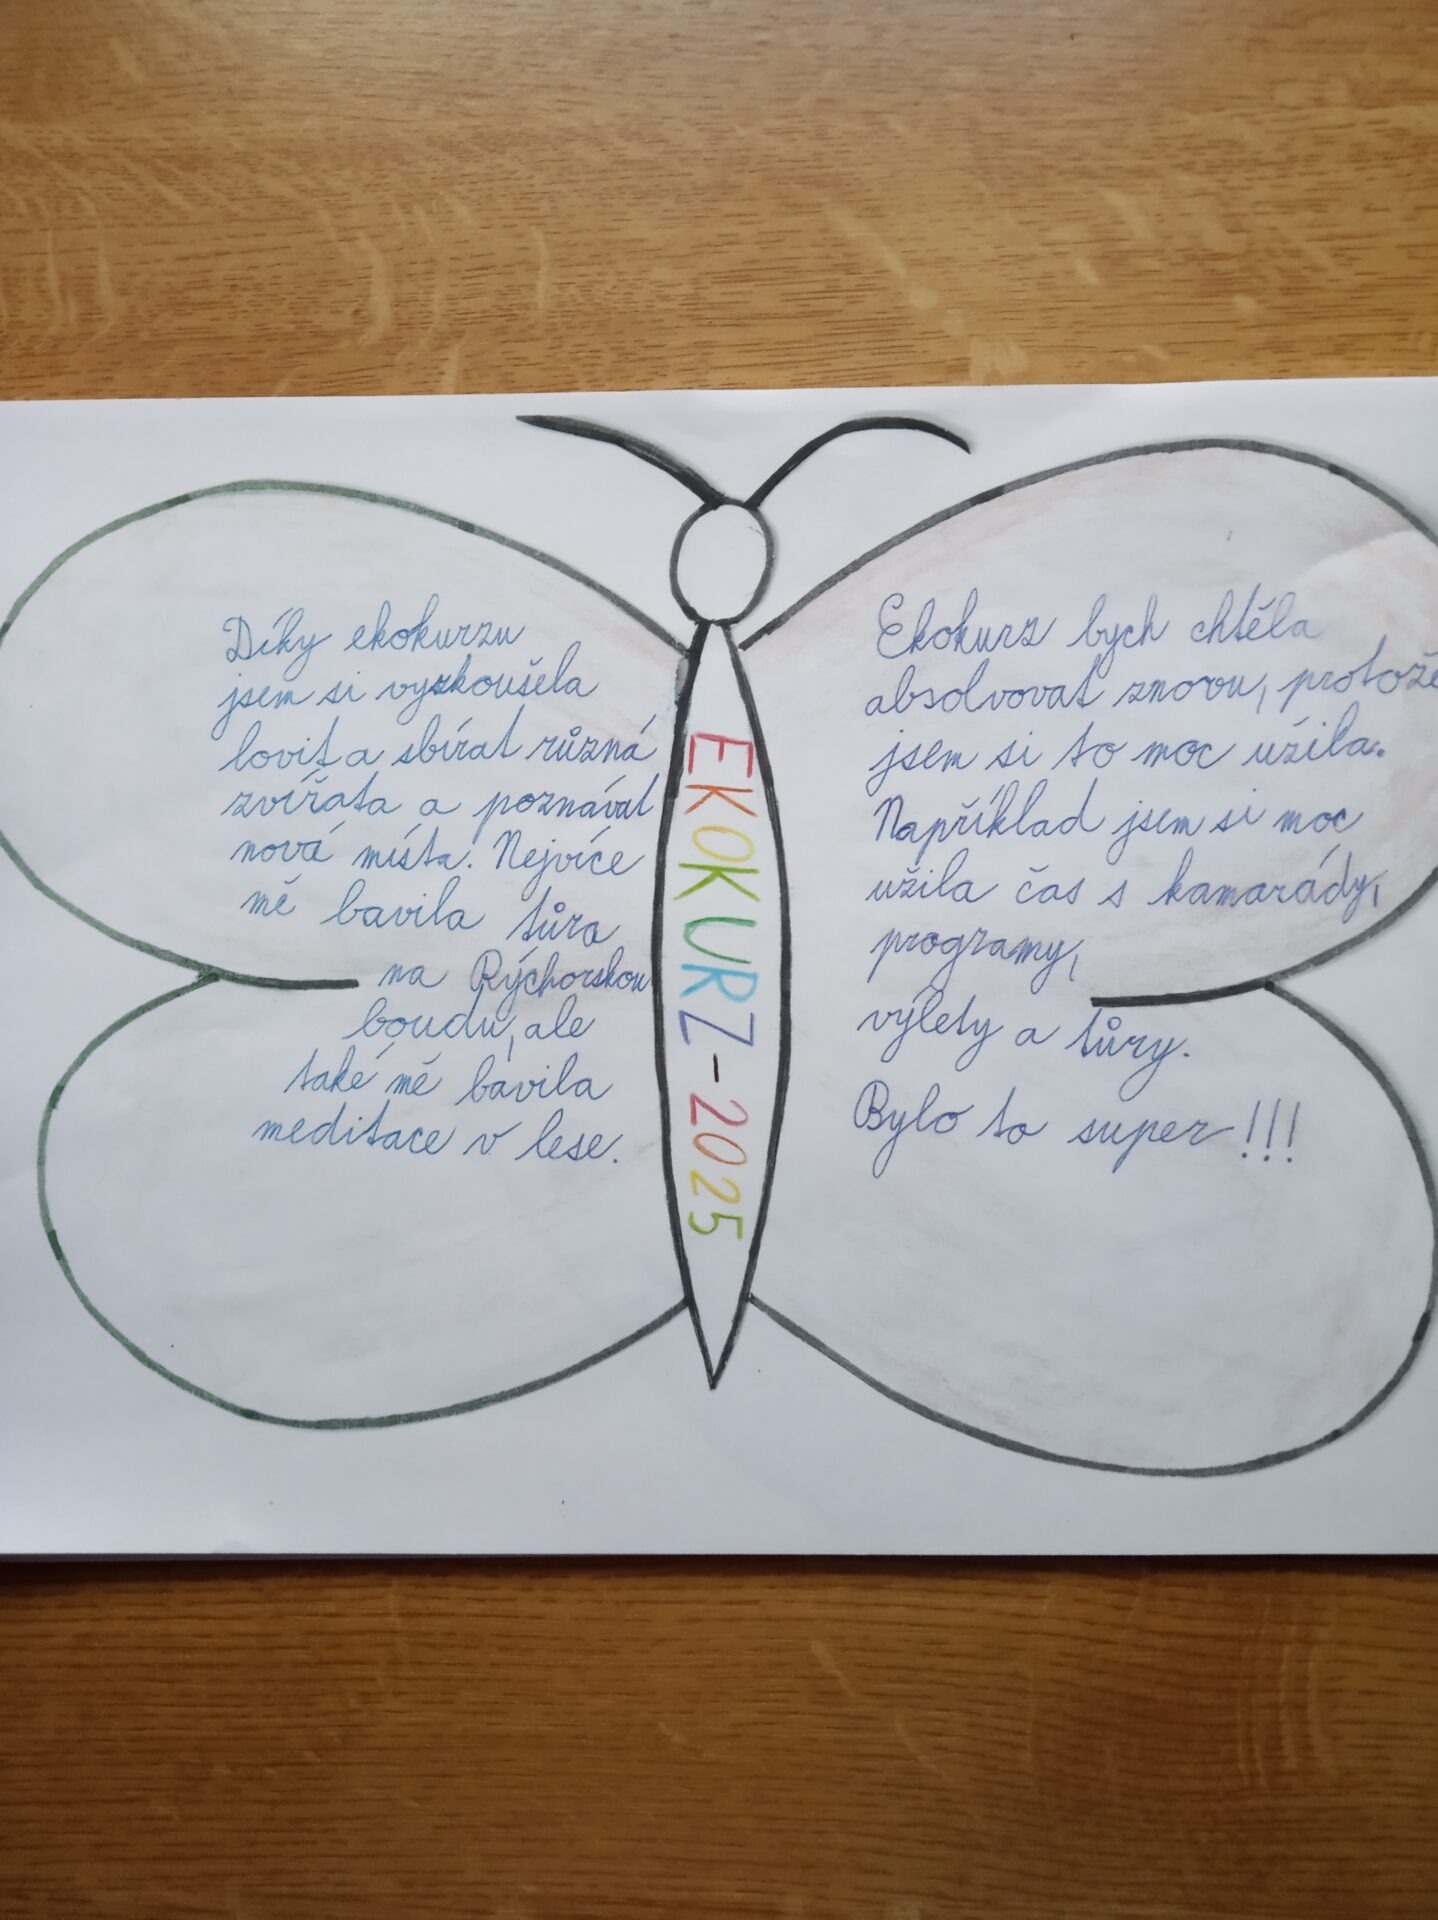 Díky ekokurzu
jsem si vyzkoušela
lovit a sbírat různá
zvířata a poznávat
nová místa. Nejvíce
mě bavila túra
na Rýchorskou
boudu, ale
také mě bavila
meditace v lese.
EKOKURZ-2025
Ekokurz bych chtěla
absolvovat znovu, protože
jsem si to moc užila.
Například jsem si moc
užila čas s kamarády,
programy,
výlety a tůry.
Bylo to super!!!